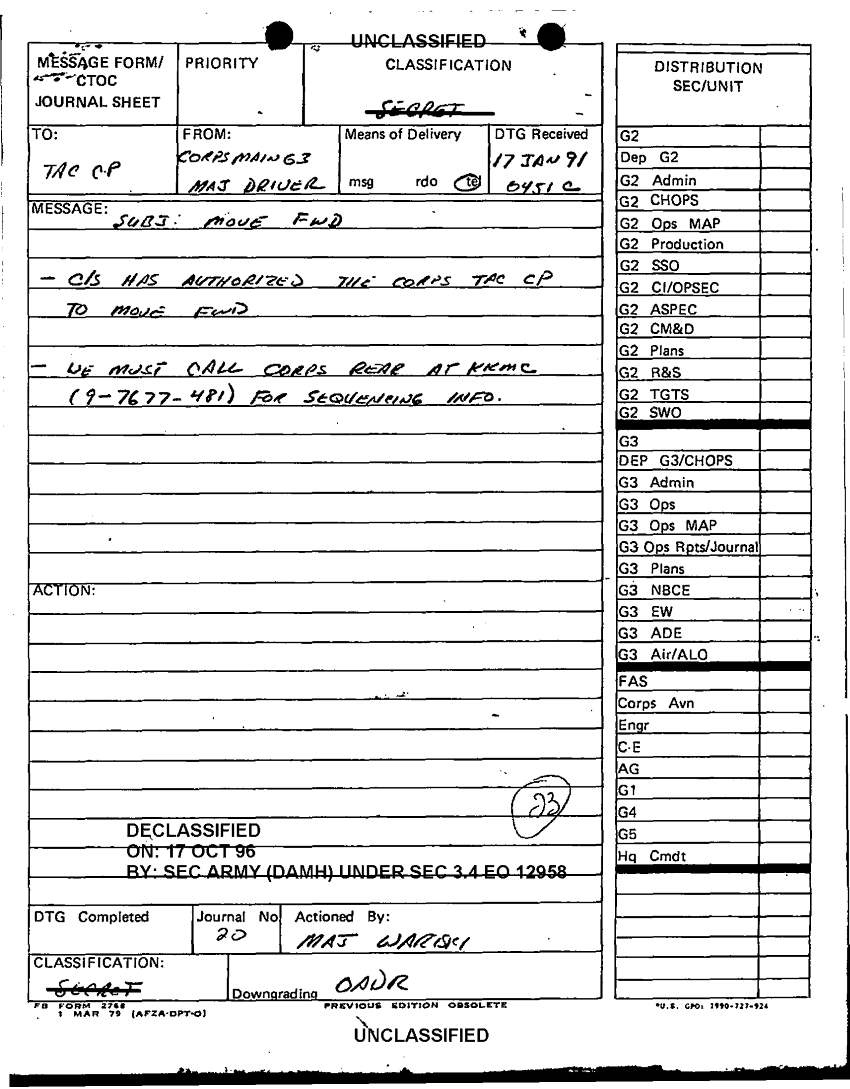 UNCLASSIFIED
MESSAGE FORM/
CTOC
JOURNAL SHEET
PRIORITY
CLASSIFICATION
SECRET
TO:
TAC CP
FROM:
CORPS MAIN G3
MAJ DRIVER
Means of Delivery
msg rdo tel
DTG Received
17 JAN 91
0451 C
MESSAGE:
SUBJ: MOVE FWD
- C/S HAS AUTHORIZED THE CORPS TAC CP
TO MOVE FWD
- WE MUST CALL CORPS REAR AT KKMC
(9-7677-481) FOR SEQUENCING INFO.
ACTION:
23
DECLASSIFIED
ON: 17 OCT 96
BY: SEC ARMY (DAMH) UNDER SEC 3.4 EO 12958
DTG Completed
Journal No
20
Actioned By:
MAJ
CLASSIFICATION:
SECRET
Downgrading OADR
FB FORM 2768
1 MAR 79 (AFZA-DPT-O)
PREVIOUS EDITION OBSOLETE
UNCLASSIFIED
DISTRIBUTION
SEC/UNIT
G2
Dep G2
G2 Admin
G2 CHOPS
G2 Ops MAP
G2 Production
G2 SSO
G2 CI/OPSEC
G2 ASPEC
G2 CM&D
G2 Plans
G2 R&S
G2 TGTS
G2 SWO
G3
DEP G3/CHOPS
G3 Admin
G3 Ops
G3 Ops MAP
G3 Ops Rpts/Journal
G3 Plans
G3 NBCE
G3 EW
G3 ADE
G3 Air/ALO
FAS
Corps Avn
Engr
C-E
AG
G1
G4
G5
Hq Cmdt
*U.S. GPO: 1990-727-924